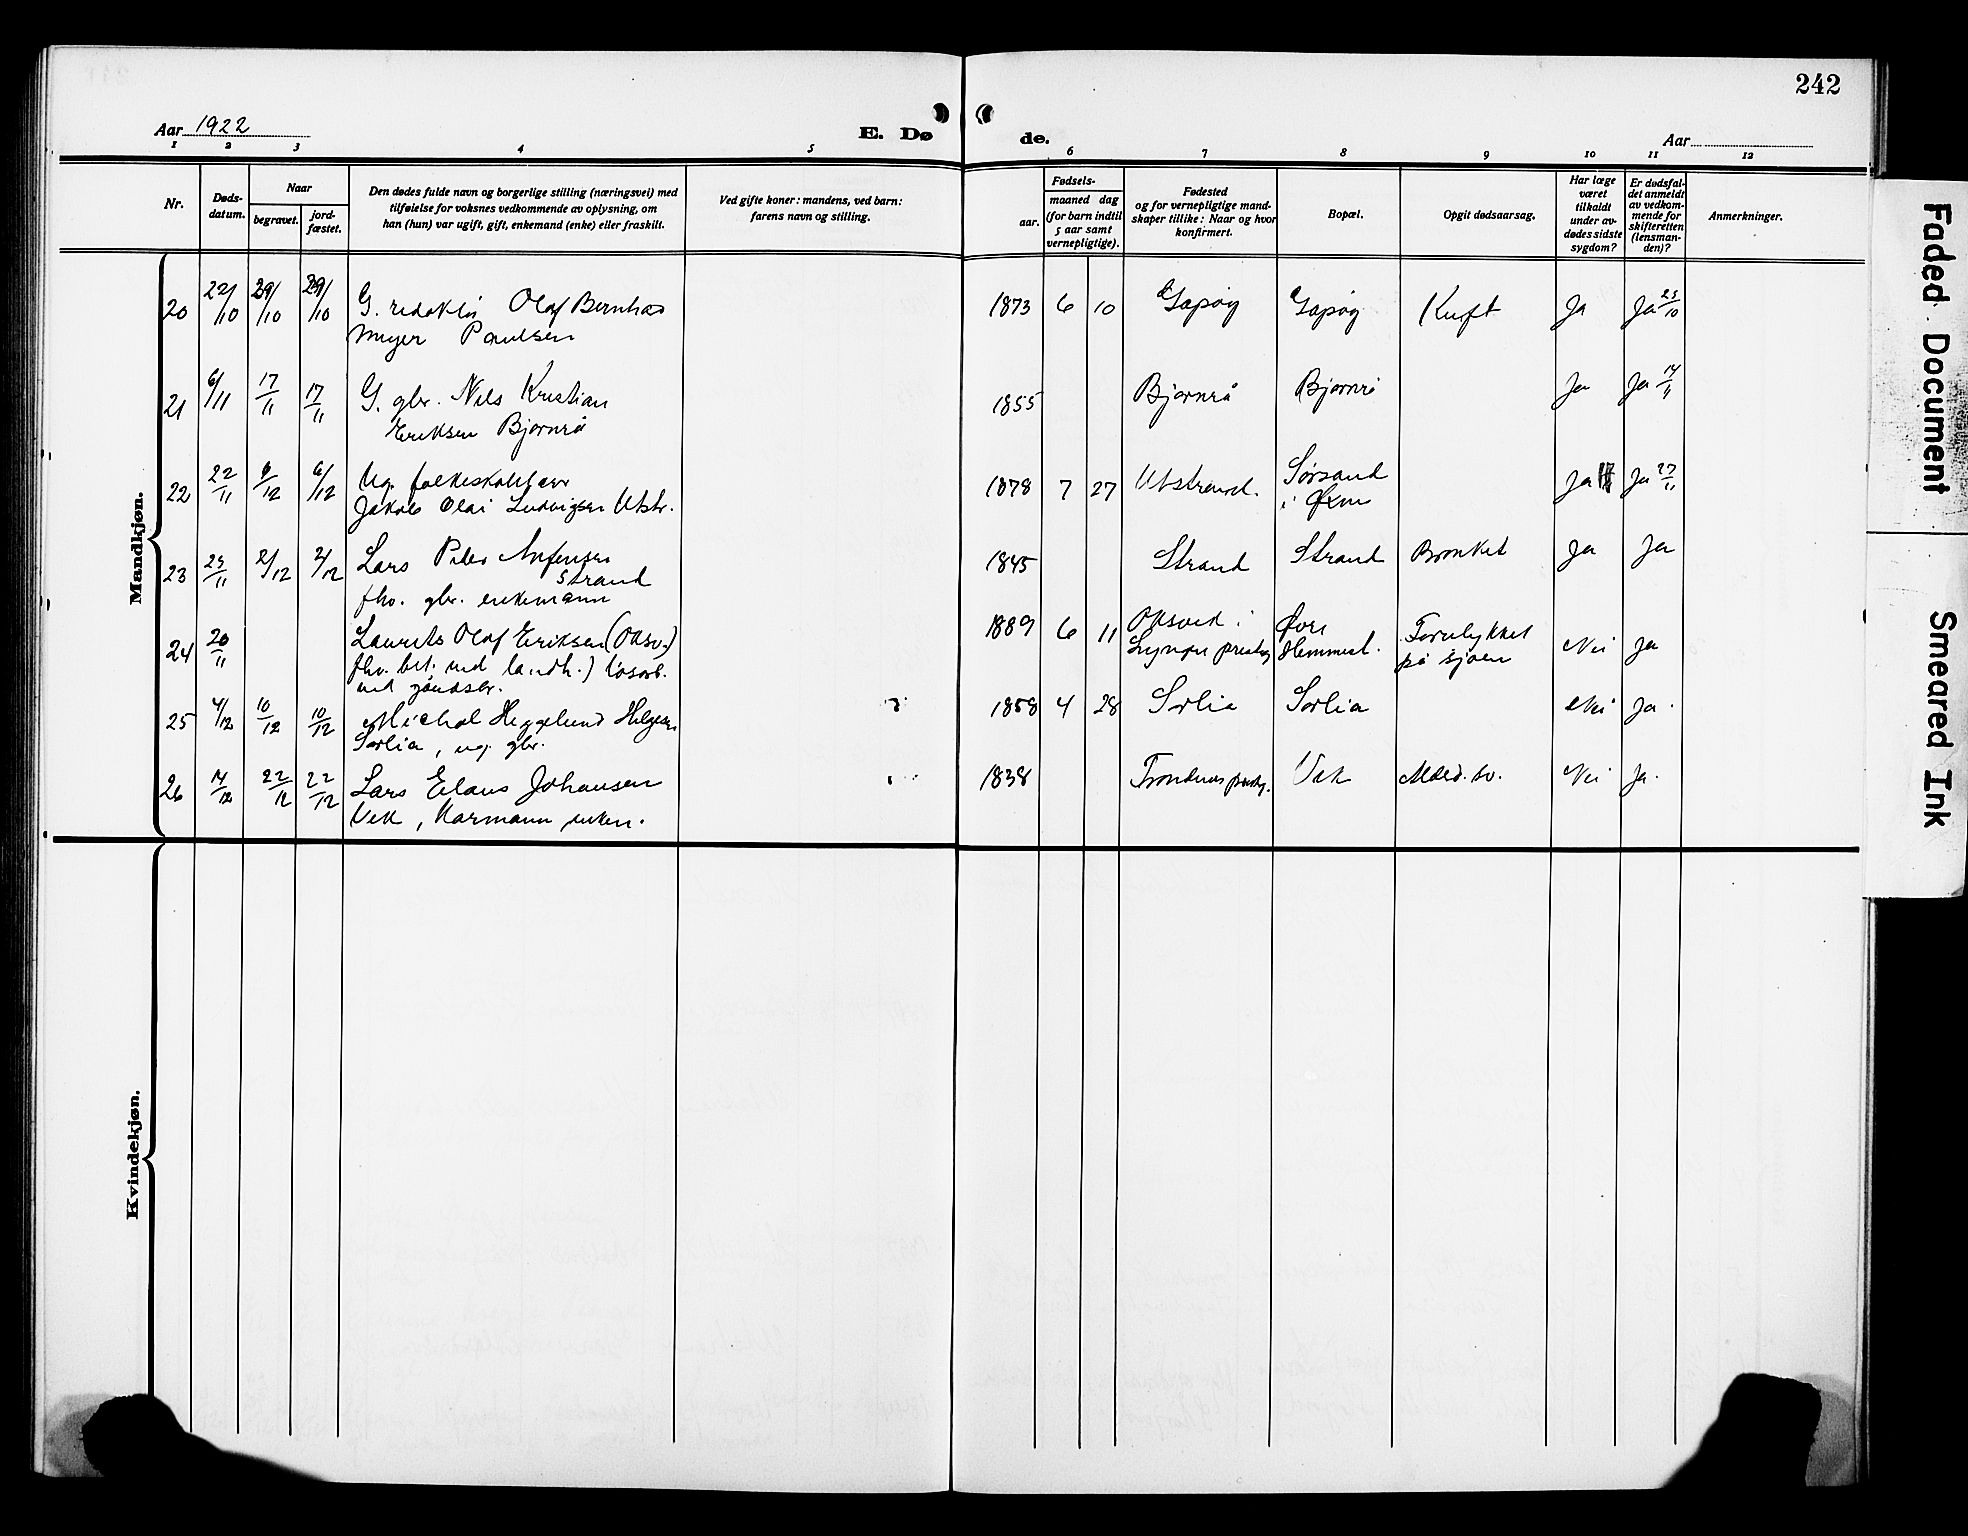 242
Aar 1922
E. Dø de.
Aar
1 2 3 4 5 6 7 8 9 10 11 12
Nr.
Døds-
datum.
Naar
begravet.
jord-
fæstet.
Den dødes fulde navn og borgerlige stilling (næringsvei) med
tilføielse for voksnes vedkommende av oplysning, om
han (hun) var ugift, gift, enkemand (enke) eller fraskilt.
Ved gifte koner: mandens, ved barn:
farens navn og stilling.
Fødsels-
aar.
maaned dag
(for barn indtil
5 aar samt
vernepligtige).
Fødested
og for vernepligtige mand-
skaper tillike: Naar og hvor
konfirmert.
Bopæl.
Opgit dødsaarsag.
Har læge
været
tilkaldt
under av-
dødes sidste
sygdom?
Er dødsfal-
det anmeldt
av vedkom-
mende for
skifteretten
(lensman-
den)?
Anmerkninger.
Mandkjøn.
20 22/10 29/10 29/10 G. redaktør Olaf Bernhard
Meyer Paulsen
1873 6 10 Gapøy Gapøy Kreft Ja Ja 25/10
21 6/11 17/11 17/11 G. gbr. Nils Kristian
Eriksen Bjørnrå
1855 Bjørnrå Bjørnrå Ja Ja 14/11
22 22/11 6/12 6/12 Ug. folkeskolelærer
Jakob Olai Ludvigsen Utstr.
1878 7 27 Utstrand. Sørsand
i
Ja Ja 27/11
23 25/11 2/12 2/12 Lars Peder Anfinsen
Strand
fhv. gbr. enkemann
1845 Strand Strand Bronkit Ja Ja
24 20/11 Laurits Olaf Eriksen (Oksv.)
fhv. bet. ved landh.) løsarb.
ved gårdsbr.
1889 6 11 Oksvik i
Lyngen prestegj
Øvre
Hemmest.
Forulykket
på sjøen
Nei Ja
25 4/12 10/12 10/12 Michal Heggelund Helgesen
Sørlia, ug. gbr.
1858 4 28 Sørlia Sørlia Nei Ja.
26 14/12 22/12 22/12 Lars Elaus Johansen
Vik, kårmann, enkem.
1838 Trondenes prestegj. Vik Alderd. sv. Nei Ja.
Kvindekjøn.
Faded Document
Smeared Ink